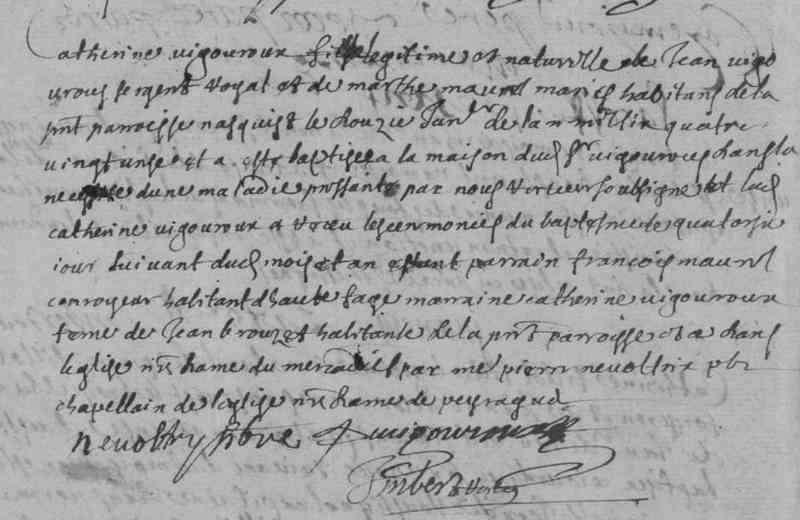 Catherine vigouroux fille legitime et naturelle de Jean vigo
uroux sergent royal et de marthe maurel mariés habitans de la
pnt parroisse nasquist le douzie Janr de lan mil six quatre
vingt unse et a esté baptisee a la maison dud sr vigouroux dans la
necessité dune maladie pressante par nous vicaire soussigné et lad
catherine vigouroux a receu les ceremonies du baptesme le quatorsie
iour suivant dud mois et an estant parrain francois maurel
conroyeur habitant dhaute fage marraine catherine vigouroux
feme de Jean brouzet habitante de la pnt parroisse et ce dans
leglise nre dame du mercadiel par me pierre nevoltrix pbr
chapellain de leglise nre dame de peyragude
nevoltry pbre J vigouroux
Imbert